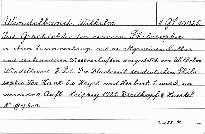 Windelband, Wilhelm
Die Geschichte der neueren Philosophie
in ihrem Zusammenhange mit der allgemeinen Kultur
und den besonderen Wissenschaften dargestellt von Wilhelm
Windelband. 2. Bd. Die Blütezeit der deutschen Philo-
sophie. Von Kant bis Hegel und Herbart.
Aufl. Leipzig 1922 Breitkopf & Härtel